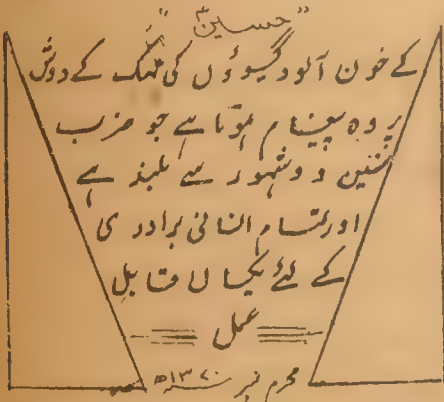 "حسینؑ"
کے خون آلود گیسوؤں کی مہک کے دوش
پر وہ پیغام ہوتا ہے جو حزب
سنین و شہور سے بلند ہے
اور تمام انسانی برادری
کے لئے یکساں قابل
عمل
محرم نمبر ۱۳۷۰ھ